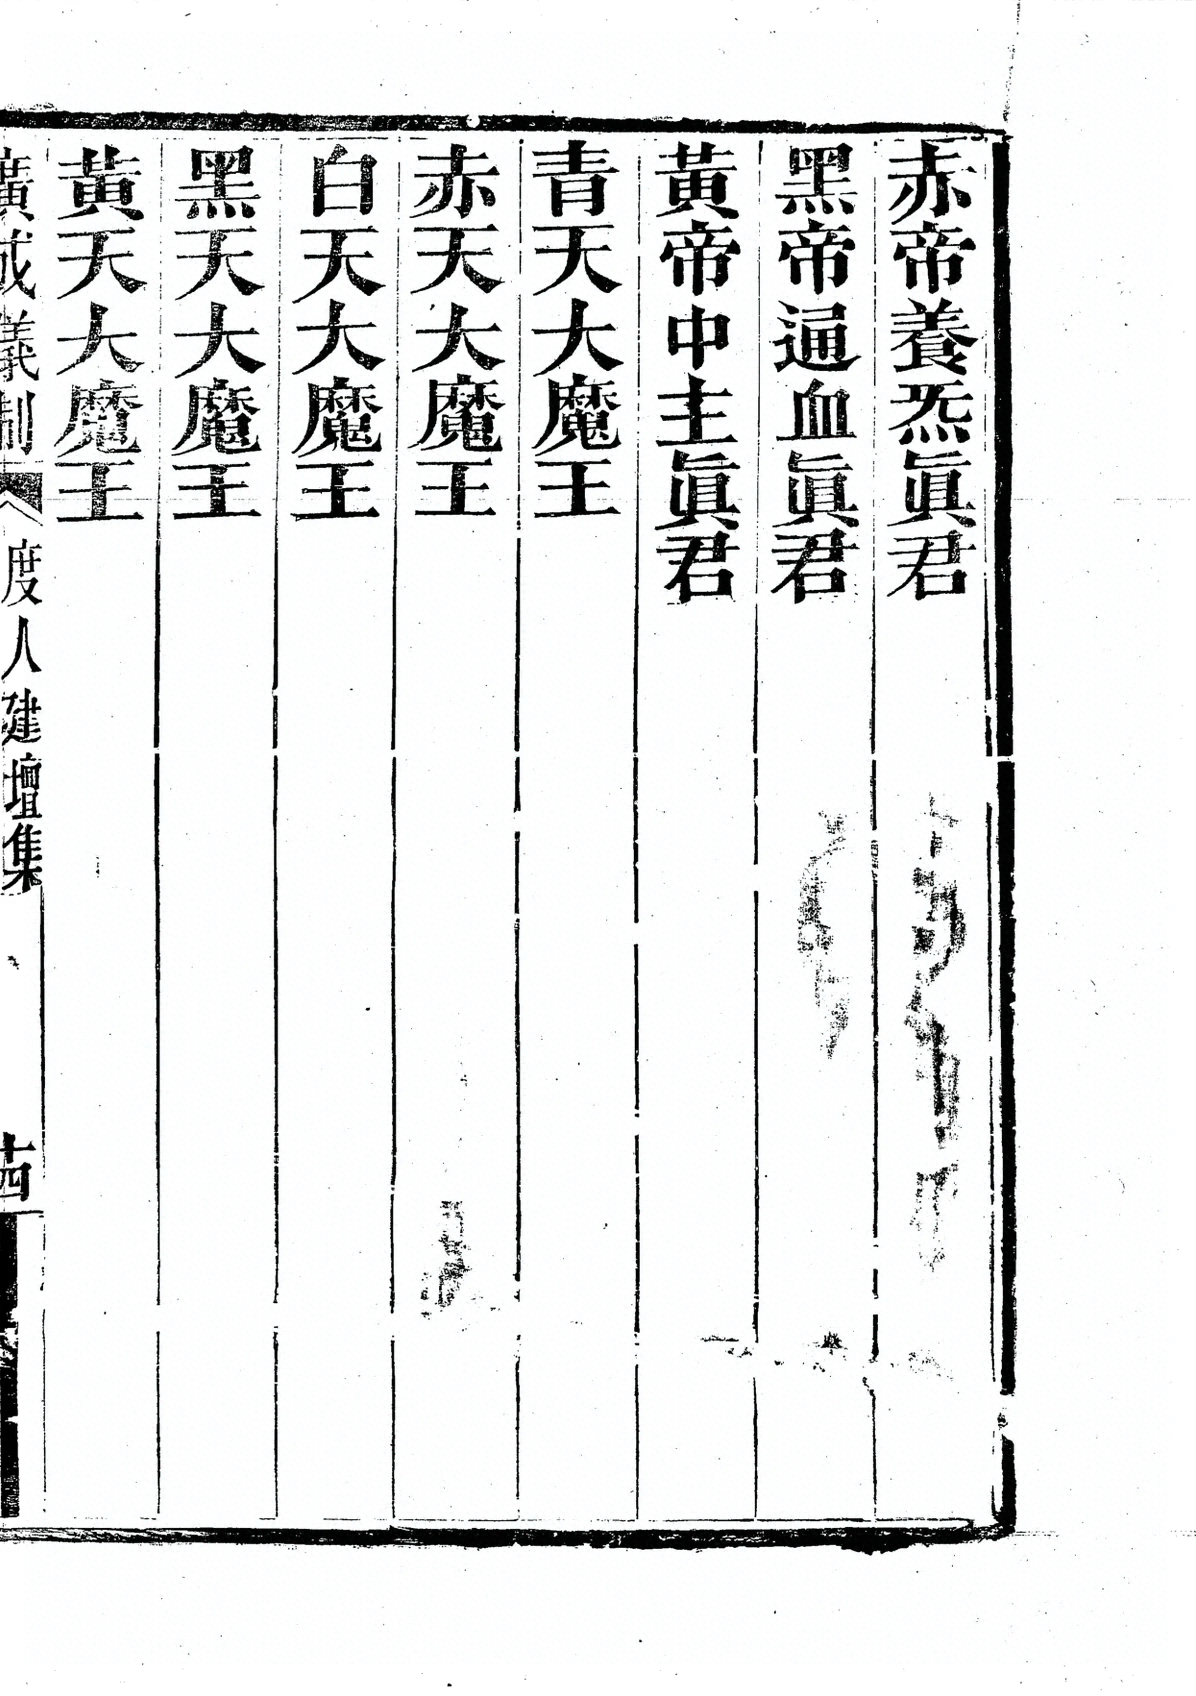 赤帝養炁眞君
黑帝通血眞君
黃帝中主眞君
青天大魔王
赤天大魔王
白天大魔王
黑天大魔王
黃天大魔王
廣成儀制
度人建壇集
十四